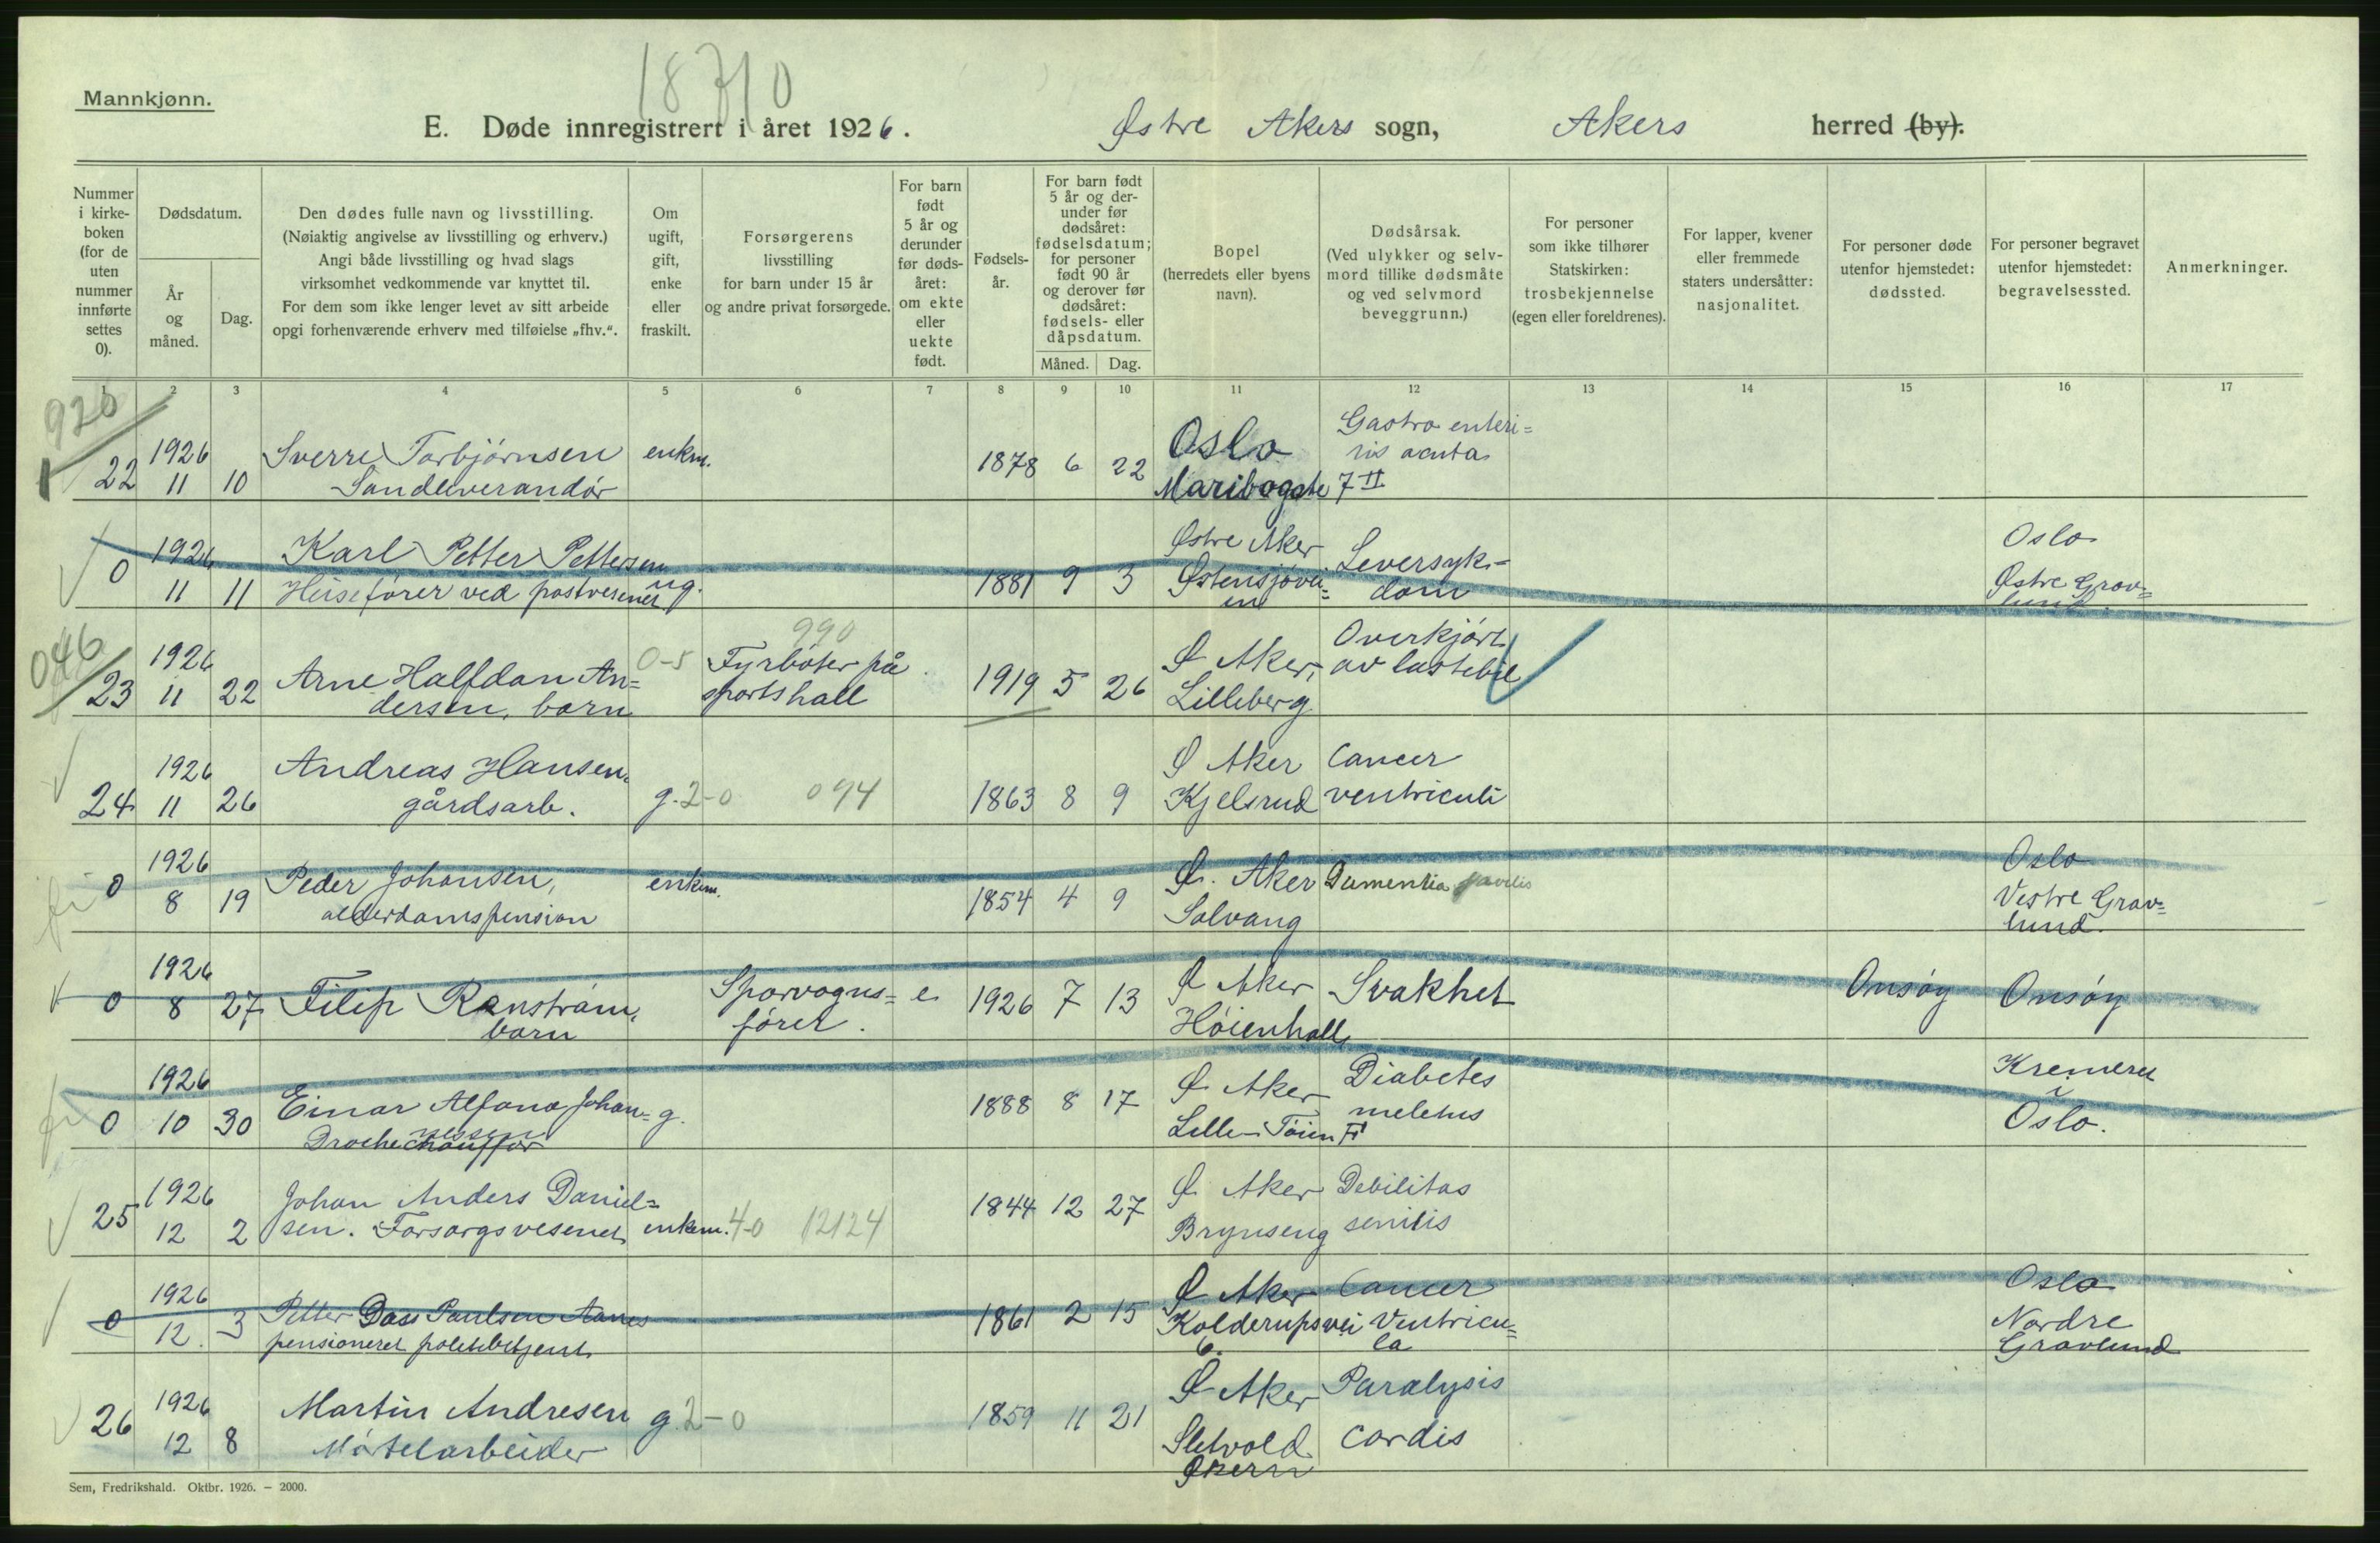 18310
Mannkjønn.
E. Døde innregistrert i året 1926. Østre Akers sogn, Akers herred (by).
Nummer i kirkeboken (for de uten nummer innførte settes 0).
Dødsdatum.
År og måned.
Dag.
Den dødes fulle navn og livsstilling.
(Nøiaktig angivelse av livsstilling og erhverv.)
Angi både livsstilling og hvad slags
virksomhet vedkommende var knyttet til.
For dem som ikke lenger levet av sitt arbeide
opgi forhenværende erhverv med tilføielse „fhv.“.
Om ugift, gift, enke eller fraskilt.
Forsørgerens livsstilling
for barn under 15 år
og andre privat forsørgede.
For barn født 5 år og derunder før dødsåret: om ekte eller uekte født.
Fødselsår.
For barn født 5 år og derunder før dødsåret: fødselsdatum; for personer født 90 år og derover før dødsåret: fødsels- eller dåpsdatum.
Måned. Dag.
Bopel
(herredets eller byens navn).
Dødsårsak.
(Ved ulykker og selvmord tillike dødsmåte og ved selvmord beveggrunn.)
For personer som ikke tilhører Statskirken: trosbekjennelse (egen eller foreldrenes).
For lapper, kvener eller fremmede staters undersåtter: nasjonalitet.
For personer døde utenfor hjemstedet: dødssted.
For personer begravet utenfor hjemstedet: begravelsessted.
Anmerkninger.
1 2 3 4 5 6 7 8 9 10 11 12 13 14 15 16 17
926
1926 Sverre Torbjørnsen enkm. Oslo Gastro enteri=
22 11 10 Sandleverandør 1878 6 22 Maribogate 7 II tis acuta
1926 Karl Petter Pettersen Østre Aker Leversyk- Oslo
0 11 11 Heisefører ved postvesenet ug. 1881 9 3 Østensjøvei= en dom Østre Grav= lund.
046 990
1926 Arne Halfdan An= 0-5 Fyrbøter på Ø Aker, Overkjørt
23 11 22 dersen, barn sportshall 1919 5 26 Lilleberg av lastebil
1926 Andreas Hansen, Ø Aker Cancer
24 11 26 gårdsarb. g. 2-0 094 1863 8 9 Kjelsrud ventriculi
1926 Peder Johansen, enkem. Ø. Aker Dementia Oslo
0 8 19 alderdomspension 1854 4 9 Solvang Vestre Grav= lund.
1926 Filip Ranstrøm, Sporvogns= e. Ø Aker Svakhet Onsøy Onsøy
0 8 27 barn fører. 1926 7 13 Høienhall
1926 Einar Alfons Johan= g. Ø Aker Diabetes Kremeret i
0 10 30 nessen Drochechauffør 1888 8 17 Lille-Tøien meletus Oslo.
1926 Johan Anders Daniel= Ø Aker Debilitas
25 12 2 sen. Forsorgsvesenet enkem. 4-0 12124 1844 12 27 Brynseng senilis
1926 Petter Dass Paulsen Aanes Ø Aker Cancer Oslo
0 12. 3 pensioneret politibetjent 1861 2 15 Kolderupsvei 6. Ventricu= la Nordre Gravlund
1926 Martin Andresen g. 2-0 Ø Aker Paralysis
26 12 8 Mørtelarbeider 1859 11 21 Sletvold Økern cordis
Sem, Fredrikshald. Oktbr. 1926. – 2000.